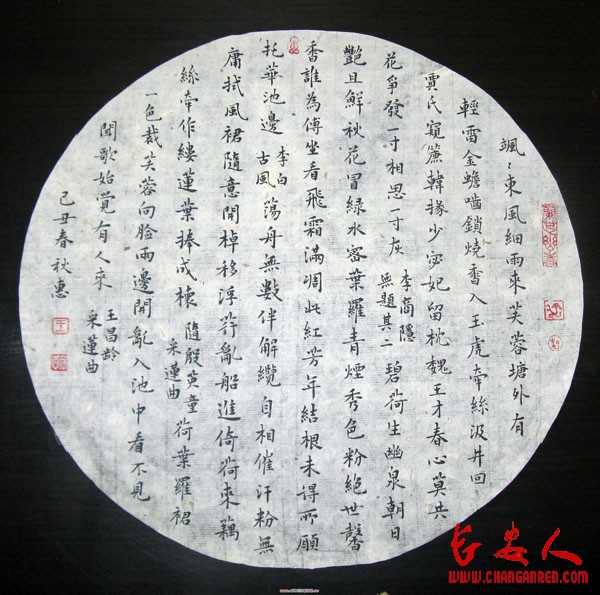 颯〻東風細雨來芙蓉塘外有
輕雷金蟾嚙鎖燒香入玉虎牽絲汲井回
賈氏窺簾韓掾少宓妃留枕魏王才春心莫共
花爭發一寸相思一寸灰 李商隱 無題其二 碧荷生幽泉朝日
艷且鮮秋花冒綠水密葉羅青煙秀色粉絕世馨
香誰為傳坐看飛霜滿凋此紅芳年結根未得所願
托華池邊 李白 古風 蕩舟無數伴解纜自相催汗粉無
庸拭風裙隨意開棹移浮荇亂船進倚荷來藕
絲牽作縷蓮葉捧成杯 隨殷英童 采蓮曲 荷葉羅裙
一色裁芙蓉向臉兩邊開亂入池中看不見
聞歌始覺有人來 王昌齡 采蓮曲
己丑春秋惠
长安人
WWW.CHANGANREN.COM